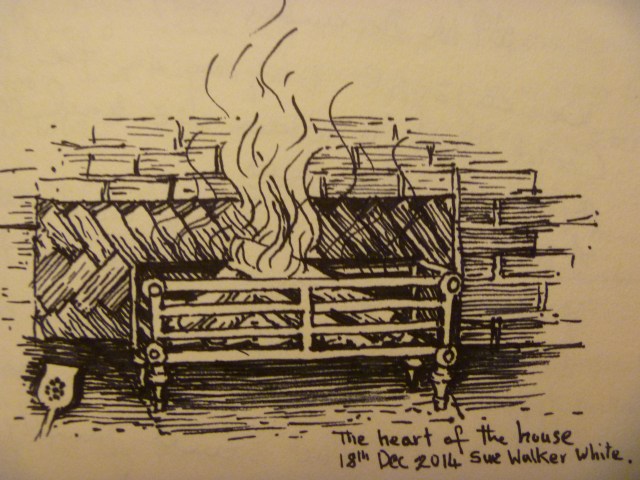 The heart of the house
18th Dec 2014 Sue Walker White.